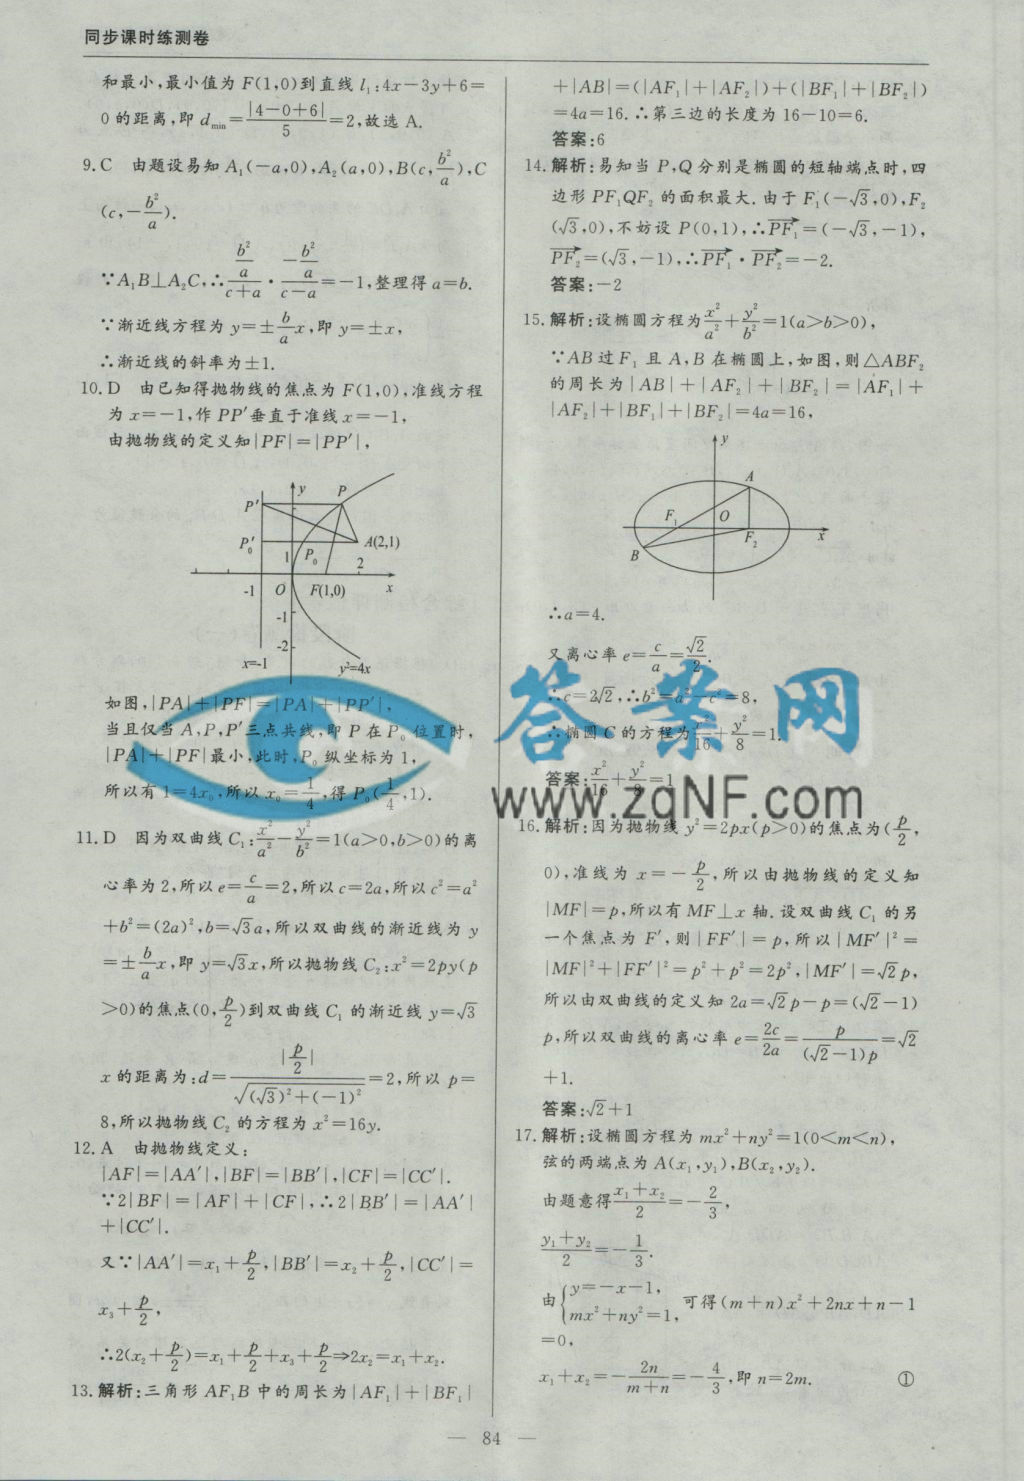 同步课时练测卷
和最小,最小值为 F(1,0)到直线 l₁:4x-3y+6=
0 的距离,即 d_min=|4-0+6|/5=2,故选 A.
9.C 由题设易知 A₁(-a,0),A₂(a,0),B(c,b²/a),C
(c,-b²/a).
∵A₁B⊥A₂C,∴(b²/a)/(c+a)·(-b²/a)/(c-a)=-1,整理得 a=b.
∵渐近线方程为 y=±(b/a)x,即 y=±x,
∴渐近线的斜率为±1.
10.D 由已知得抛物线的焦点为 F(1,0),准线方程
为 x=-1,作 PP′垂直于准线 x=-1,
由抛物线的定义知|PF|=|PP′|,
y
P′
P
P₀′
P₀
A(2,1)
1
2
-1
O
F(1,0)
x
-1
-2
x=-1
y²=4x
如图,|PA|+|PF|=|PA|+|PP′|,
当且仅当 A,P,P′三点共线,即 P 在 P₀ 位置时,
|PA|+|PF|最小,此时,P₀ 纵坐标为 1,
所以有 1=4x₀,所以 x₀=1/4,得 P₀(1/4,1).
11.D 因为双曲线 C₁:x²/a²-y²/b²=1(a>0,b>0)的离
心率为 2,所以 e=c/a=2,所以 c=2a,所以 c²=a²
+b²=(2a)²,b=√3a,所以双曲线的渐近线为 y
=±(b/a)x,即 y=√3x,所以抛物线 C₂:x²=2py(p
>0)的焦点(0,p/2)到双曲线 C₁ 的渐近线 y=√3
x 的距离为:d=|p/2|/√((√3)²+(-1)²)=2,所以 p=
8,所以抛物线 C₂ 的方程为 x²=16y.
12.A 由抛物线定义:
|AF|=|AA′|,|BF|=|BB′|,|CF|=|CC′|.
∵2|BF|=|AF|+|CF|,∴2|BB′|=|AA′|
+|CC′|.
又∵|AA′|=x₁+p/2,|BB′|=x₂+p/2,|CC′|=
x₃+p/2,
∴2(x₂+p/2)=x₁+p/2+x₃+p/2⇒2x₂=x₁+x₂.
13.解析:三角形 AF₁B 中的周长为|AF₁|+|BF₁|
+|AB|=(|AF₁|+|AF₂|)+(|BF₁|+|BF₂|)
=4a=16.∴第三边的长度为 16-10=6.
答案:6
14.解析:易知当 P,Q 分别是椭圆的短轴端点时,四
边形 PF₁QF₂ 的面积最大.由于 F₁(-√3,0),F₂
(√3,0),不妨设 P(0,1),∴PF₁→=(-√3,-1),
PF₂→=(√3,-1),∴PF₁→·PF₂→=-2.
答案:-2
15.解析:设椭圆方程为x²/a²+y²/b²=1(a>b>0),
∵AB 过 F₁ 且 A,B 在椭圆上,如图,则△ABF₂
的周长为|AB|+|AF₂|+|BF₂|=|AF₁|+
|AF₂|+|BF₁|+|BF₂|=4a=16,
y
A
F₁
O
F₂
x
B
∴a=4.
又离心率 e=c/a=√2/2.
∴c=2√2,∴b²=a²-c²=8,
∴椭圆 C 的方程为x²/16+y²/8=1.
答案:x²/16+y²/8=1
答案网
www.zqNF.com
16.解析:因为抛物线 y²=2px(p>0)的焦点为(p/2,
0),准线为 x=-p/2,所以由抛物线的定义知
|MF|=p,所以有 MF⊥x 轴.设双曲线 C₁ 的另
一个焦点为 F′,则|FF′|=p,所以|MF′|²=
|MF|²+|FF′|²=p²+p²=2p²,|MF′|=√2p,
所以由双曲线的定义知 2a=√2p-p=(√2-1)
p,所以双曲线的离心率 e=2c/2a=p/((√2-1)p)=√2
+1.
答案:√2+1
17.解析:设椭圆方程为 mx²+ny²=1(0<m<n),
弦的两端点为 A(x₁,y₁),B(x₂,y₂).
由题意得(x₁+x₂)/2=-2/3,
(y₁+y₂)/2=-1/3.
由{y=-x-1, mx²+ny²=1, 可得(m+n)x²+2nx+n-1
=0,
x₁+x₂=-2n/(m+n)=-4/3,即 n=2m. ①
— 84 —